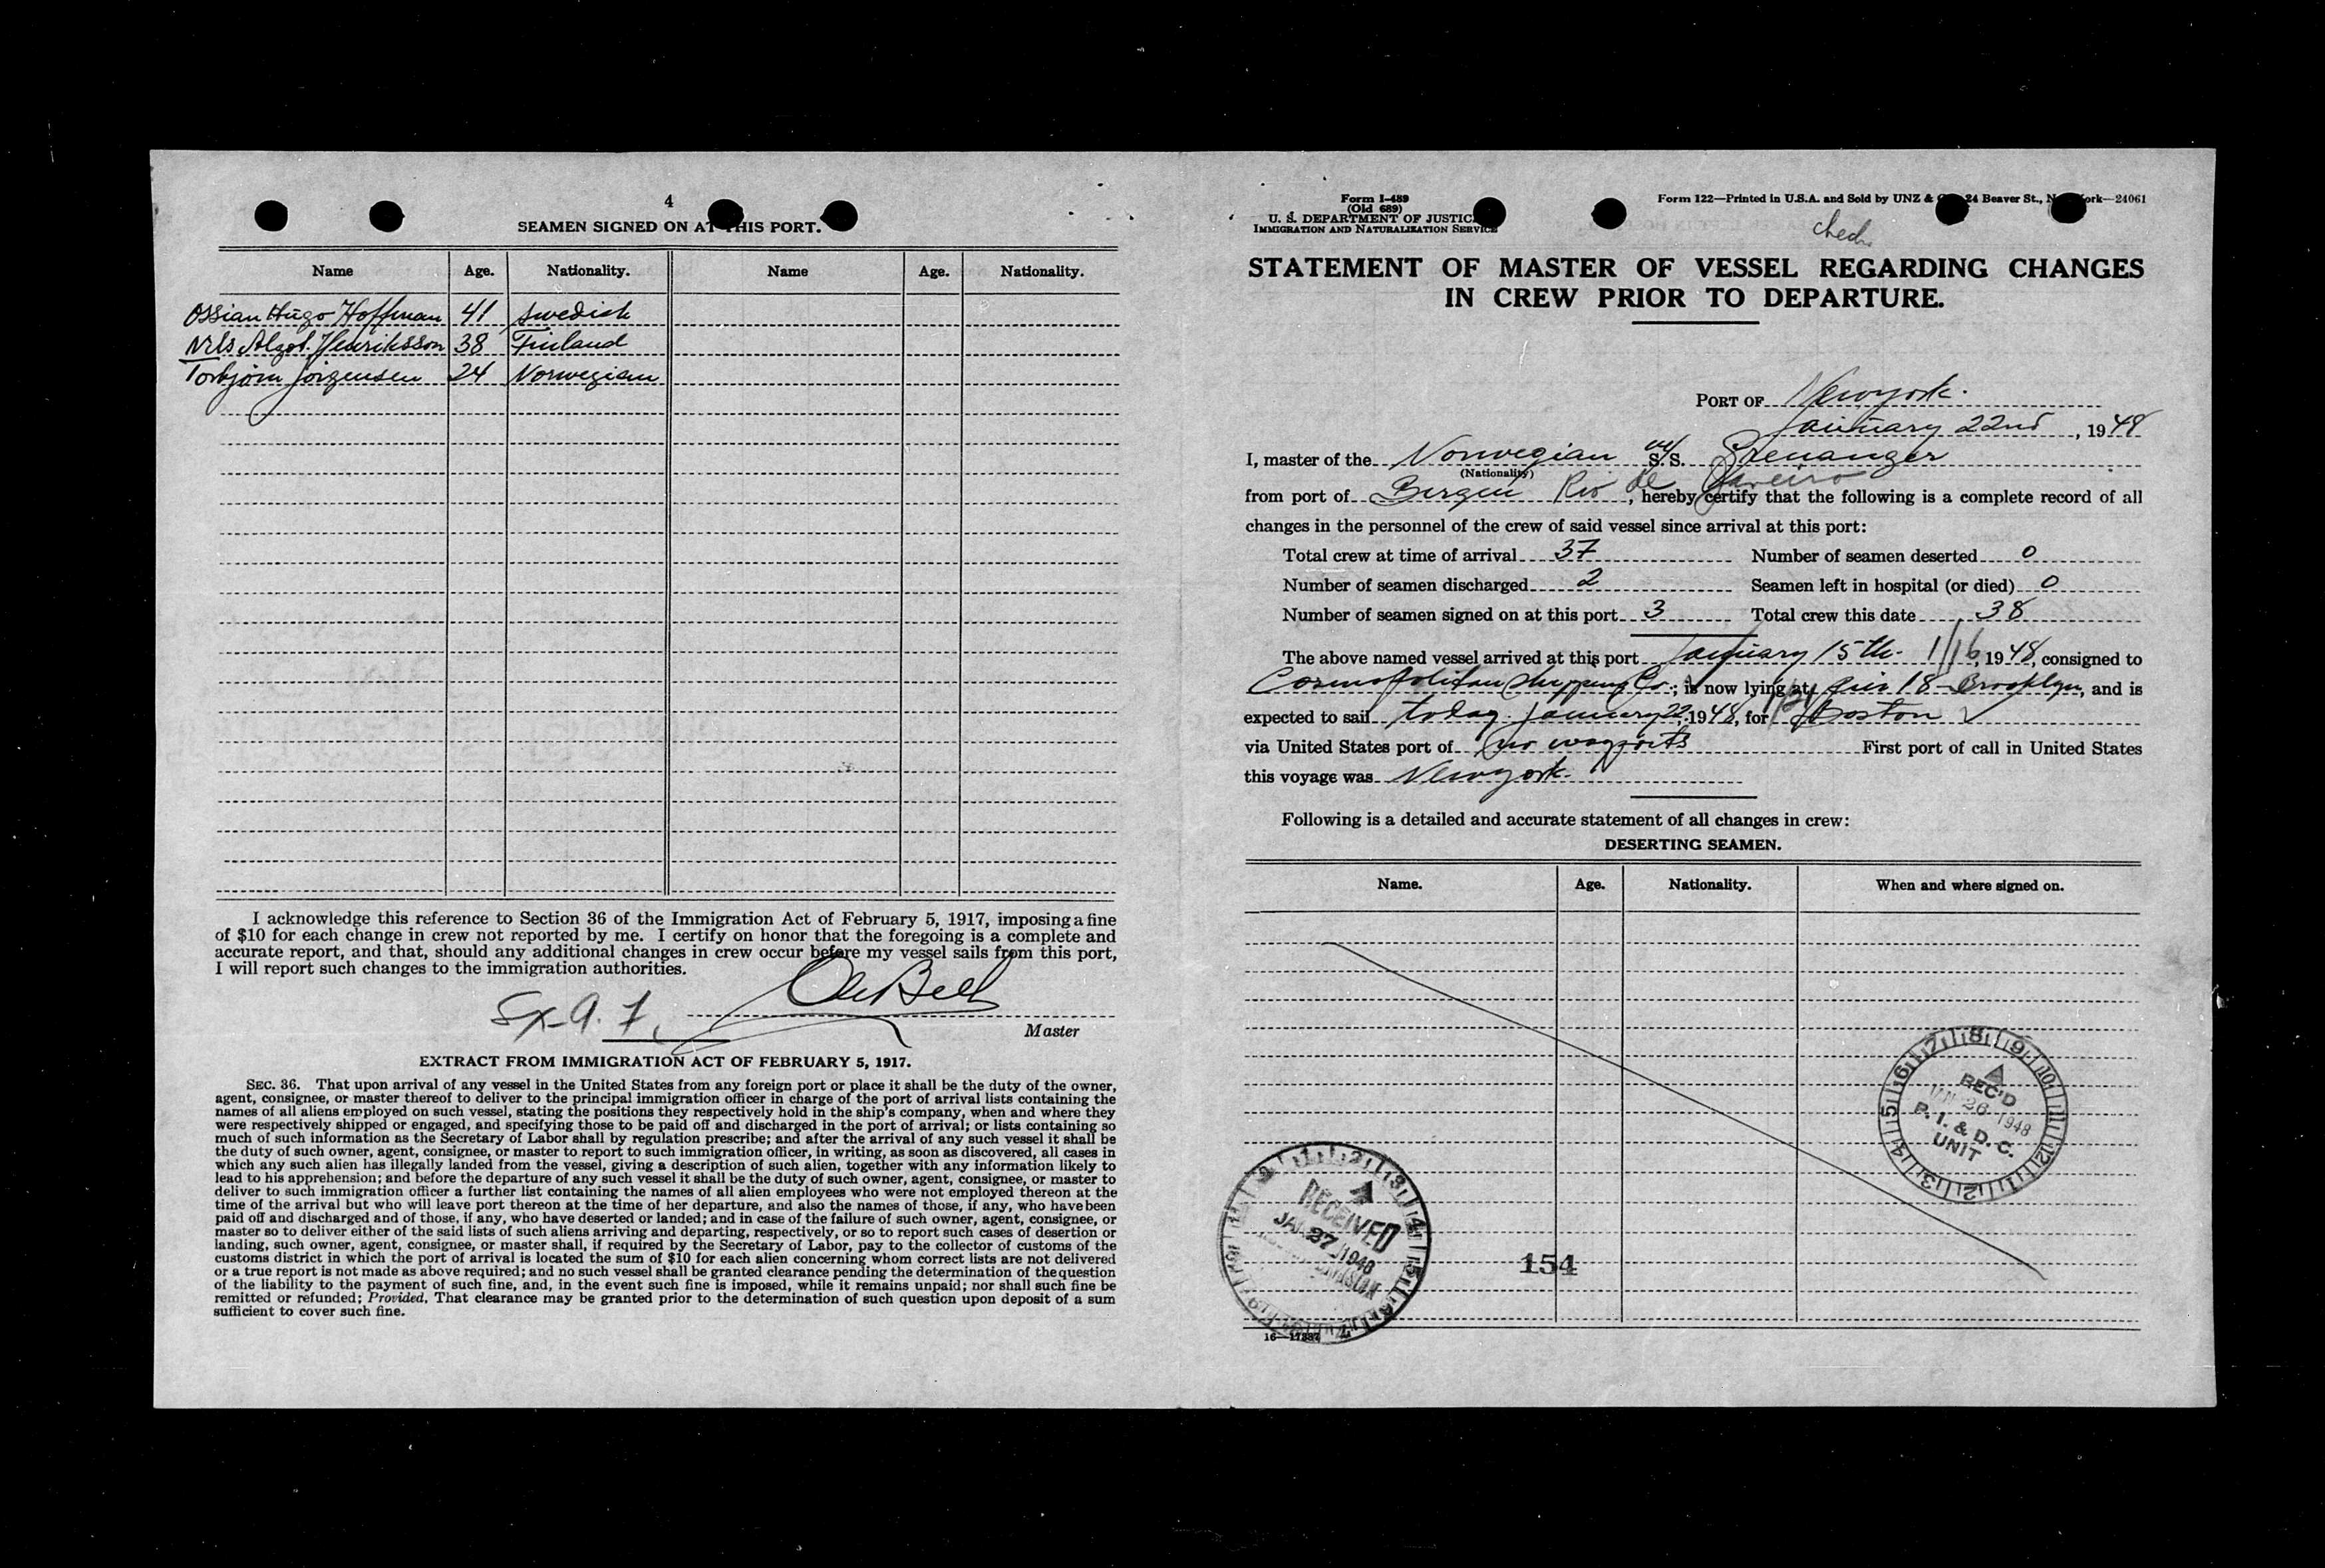 4
SEAMEN SIGNED ON AT THIS PORT.
Name Age. Nationality. Name Age. Nationality.
Ossian Hugo Hoffman 41 Swedish
Nils Henriksson 38 Finland
Torbjörn Jörgensen 24 Norwegian
I acknowledge this reference to Section 36 of the Immigration Act of February 5, 1917, imposing a fine
of $10 for each change in crew not reported by me. I certify on honor that the foregoing is a complete and
accurate report, and that, should any additional changes in crew occur before my vessel sails from this port,
I will report such changes to the immigration authorities.
Master
EXTRACT FROM IMMIGRATION ACT OF FEBRUARY 5, 1917.
SEC. 36. That upon arrival of any vessel in the United States from any foreign port or place it shall be the duty of the owner,
agent, consignee, or master thereof to deliver to the principal immigration officer in charge of the port of arrival lists containing the
names of all aliens employed on such vessel, stating the positions they respectively hold in the ship's company, when and where they
were respectively shipped or engaged, and specifying those to be paid off and discharged in the port of arrival; or lists containing so
much of such information as the Secretary of Labor shall by regulation prescribe; and after the arrival of any such vessel it shall be
the duty of such owner, agent, consignee, or master to report to such immigration officer, in writing, as soon as discovered, all cases in
which any such alien has illegally landed from the vessel, giving a description of such alien, together with any information likely to
lead to his apprehension; and before the departure of any such vessel it shall be the duty of such owner, agent, consignee, or master to
deliver to such immigration officer a further list containing the names of all alien employees who were not employed thereon at the
time of the arrival but who will leave port thereon at the time of her departure, and also the names of those, if any, who have been
paid off and discharged and of those, if any, who have deserted or landed; and in case of the failure of such owner, agent, consignee, or
master so to deliver either of the said lists of such aliens arriving and departing, respectively, or so to report such cases of desertion or
landing, such owner, agent, consignee, or master shall, if required by the Secretary of Labor, pay to the collector of customs of the
customs district in which the port of arrival is located the sum of $10 for each alien concerning whom correct lists are not delivered
or a true report is not made as above required; and no such vessel shall be granted clearance pending the determination of the question
of the liability to the payment of such fine, and, in the event such fine is imposed, while it remains unpaid; nor shall such fine be
remitted or refunded; Provided, That clearance may be granted prior to the determination of such question upon deposit of a sum
sufficient to cover such fine.
Form I-489
(Old 689)
U. S. DEPARTMENT OF JUSTICE
IMMIGRATION AND NATURALIZATION SERVICE
Form 122—Printed in U.S.A. and Sold by UNZ & 24 Beaver St., New York—24061
STATEMENT OF MASTER OF VESSEL REGARDING CHANGES
IN CREW PRIOR TO DEPARTURE.
PORT OF New york.
January 22nd, 1948
I, master of the Norwegian S.S.
(Nationality)
from port of Bergen Rio de Janeiro, hereby certify that the following is a complete record of all
changes in the personnel of the crew of said vessel since arrival at this port:
Total crew at time of arrival 37 Number of seamen deserted 0
Number of seamen discharged 2 Seamen left in hospital (or died) 0
Number of seamen signed on at this port 3 Total crew this date 38
The above named vessel arrived at this port January 15th. 1/16, 1948, consigned to
Cosmopolitan Shipping Co.; is now lying at Pier 18 Brooklyn, and is
expected to sail today January 22, 1948, for Boston
via United States port of no wayports First port of call in United States
this voyage was New york.
Following is a detailed and accurate statement of all changes in crew:
DESERTING SEAMEN.
Name. Age. Nationality. When and where signed on.
REC'D
26 1948
P. I. & D. C.
UNIT
RECEIVED
JAN 27 1948
154